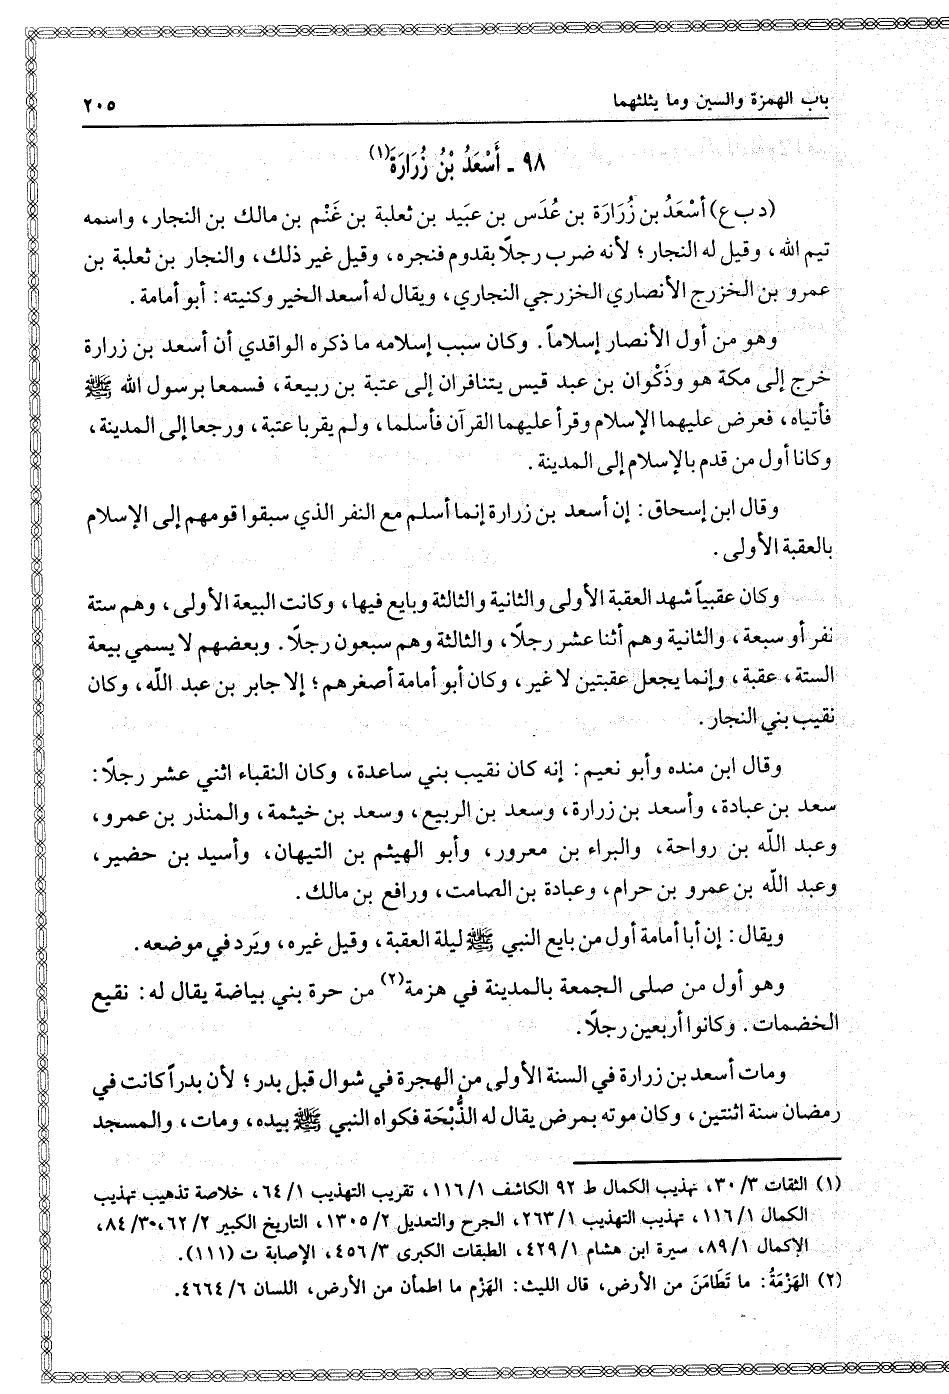 باب الهمزة والسين وما يثلثهما ٢٠٥
٩٨ ـ أَسْعَدُ بْنُ زُرَارَةَ(١)
(د ب ع) أسْعَدُ بن زُرَارَة بن عُدَس بن عبَيد بن ثعلبة بن غَنْم بن مالك بن النجار، واسمه
تيم الله، وقيل له النجار؛ لأنه ضرب رجلاً بقدوم فنجره، وقيل غير ذلك، والنجار بن ثعلبة بن
عمرو بن الخزرج الأنصاري الخزرجي النجاري، ويقال له أسعد الخير وكنيته: أبو أمامة.
وهو من أول الأنصار إسلاماً. وكان سبب إسلامه ما ذكره الواقدي أن أسعد بن زرارة
خرج إلى مكة هو وذَكْوان بن عبد قيس يتنافران إلى عتبة بن ربيعة، فسمعا برسول الله ﷺ
فأتياه، فعرض عليهما الإسلام وقرأ عليهما القرآن فأسلما، ولم يقربا عتبة، ورجعا إلى المدينة،
وكانا أول من قدم بالإسلام إلى المدينة.
وقال ابن إسحاق: إن أسعد بن زرارة إنما أسلم مع النفر الذي سبقوا قومهم إلى الإسلام
بالعقبة الأولى.
وكان عقبياً شهد العقبة الأولى والثانية والثالثة وبايع فيها، وكانت البيعة الأولى، وهم ستة
نفر أو سبعة، والثانية وهم أثنا عشر رجلاً، والثالثة وهم سبعون رجلاً. وبعضهم لا يسمي بيعة
الستة، عقبة، وإنما يجعل عقبتين لا غير، وكان أبو أمامة أصغرهم؛ إلا جابر بن عبد اللّه، وكان
نقيب بني النجار.
وقال ابن منده وأبو نعيم: إنه كان نقيب بني ساعدة، وكان النقباء اثني عشر رجلاً:
سعد بن عبادة، وأسعد بن زرارة، وسعد بن الربيع، وسعد بن خيثمة، والمنذر بن عمرو،
وعبد اللّه بن رواحة، والبراء بن معرور، وأبو الهيثم بن التيهان، وأسيد بن حضير،
وعبد اللّه بن عمرو بن حرام، وعبادة بن الصامت، ورافع بن مالك.
ويقال: إن أبا أمامة أول من بايع النبي ﷺ ليلة العقبة، وقيل غيره، ويَرد في موضعه.
وهو أول من صلى الجمعة بالمدينة في هزمة(٢) من حرة بني بياضة يقال له: نقيع
الخضمات. وكانوا أربعين رجلاً.
ومات أسعد بن زرارة في السنة الأولى من الهجرة في شوال قبل بدر؛ لأن بدراً كانت في
رمضان سنة اثنتين، وكان موته بمرض يقال له الذُّبْحَة فكواه النبي ﷺ بيده، ومات، والمسجد
(١) الثقات ٣/ ٣٠، تهذيب الكمال ط ٩٢ الكاشف ١/ ١١٦، تقريب التهذيب ١/ ٦٤، خلاصة تذهيب تهذيب
الكمال ١/ ١١٦، تهذيب التهذيب ١/ ٢٦٣، الجرح والتعديل ٢/ ١٣٠٥، التاريخ الكبير ٢/ ٦٢،٣٠/ ٨٤،
الإكمال ١/ ٨٩، سيرة ابن هشام ١/ ٤٢٩، الطبقات الكبرى ٣/ ٤٥٦، الإصابة ت (١١١).
(٢) الهَزْمَةُ: ما تَطَامَنَ من الأرض، قال الليث: الهَزْم ما اطمأن من الأرض، اللسان ٦/ ٤٦٦٤.